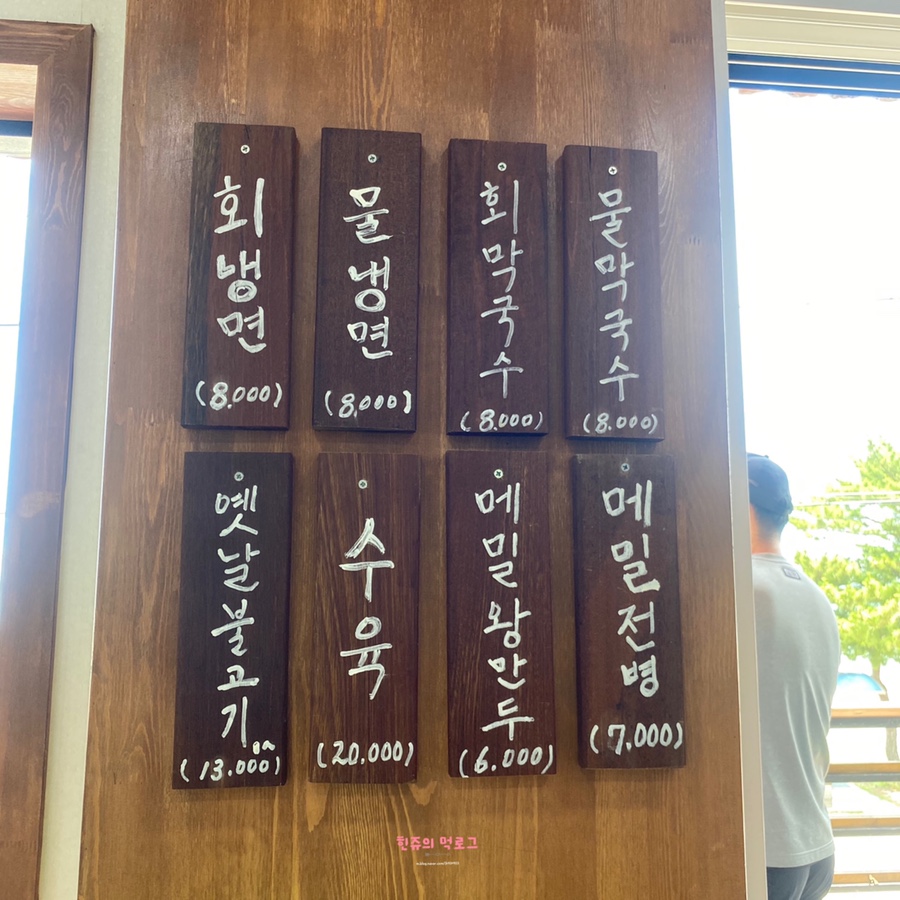 회냉면
(8.000)
물냉면
(8.000)
회막국수
(8.000)
물막국수
(8.000)
옛날불고기
(13.000)
수육
(20.000)
메밀왕만두
(6.000)
메밀전병
(7.000)
힌쥬의 먹로그